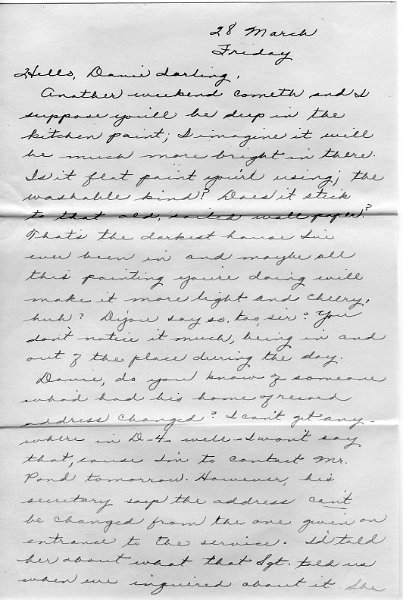 28 March
Friday
Hello, Danie darling,
Another weekend cometh and I
suppose you'll be deep in the
kitchen paint; I imagine it will
be much more bright in there.
Is it flat paint you're using; the
washable kind? Does it stick
to that old, soiled wallpaper?
That's the darkest house I've
ever been in and maybe all
this painting you're doing will
make it more light and cheery,
huh? D'you say so, too, ser? You
don't notice it much, being in and
out of the place during the day.
Danie, do you know of someone
who'd had his home of record
address changed? I can't get any-
where in D-4 well - I won't say
that, cause I'm to contact Mr.
Pond tomorrow. However, his
secretary says the address can't
be changed from the one given on
entrance to the service. I'd told
her about what that Sgt. told us
when we inquired about it She